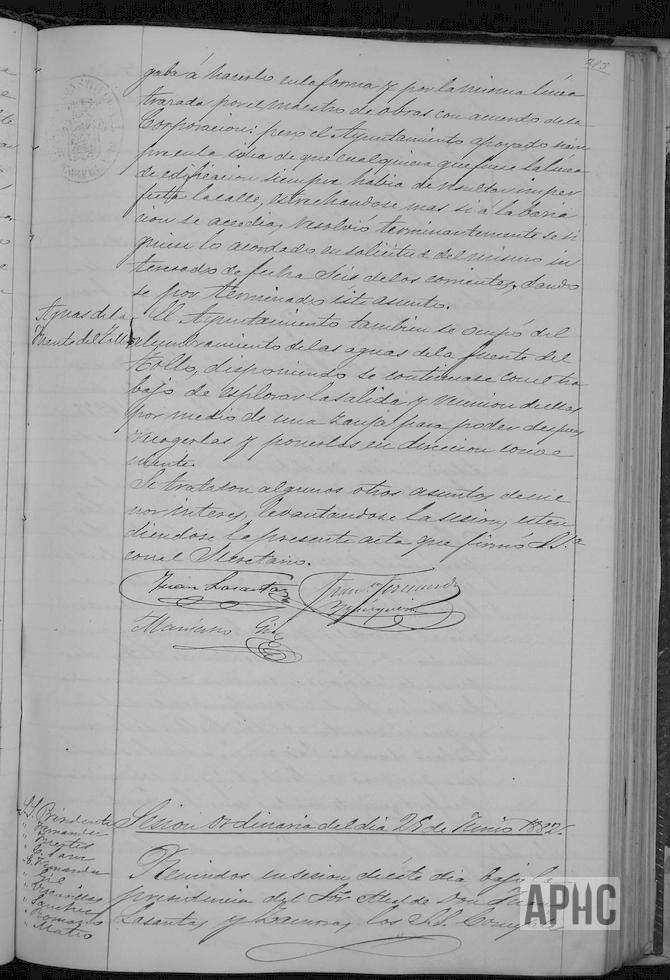 213
gaba á hacerlo en la forma y por la misma linea
trazada por el maestro de obras con acuerdo de la
Corporacion; pero el Ayuntamiento apoyado siem
pre en la idea de que cualquiera que fuera la linea
de edificacion siempre habia de resultar imper
fecta la calle, estrechandose mas si á la varia
cion se accedia, resolvió terminantemente se si
guiese lo acordado en solicitud del mismo in
teresado de fecha Seis de los corrientes, dando
se por terminado este asunto.
Aguas de la
Fuente del Tollo
El Ayuntamiento tambien se ocupó del
alumbramiento de las aguas de la fuente del
Tollo, disponiendo se continuase con el tra
bajo de esplorar la salida y reunion de ellas
por medio de una zanja para poder despues
recogerlas y ponerlas en direccion
mente.
Se trataron algunos otros asuntos de me
nor interes, levantandose la sesion, esten
diendose la presente acta que firmó S.S.ª
con el Secretario.
Juan Lasanta
Fran.co Fernand
Mariano Gil
SS. Presidente
" Fernandez
" Fuertes
" Gil
" Sanchez
" Romano
" Mateo
Sesion ordinaria del dia 25 de Junio 1882.
Reunidos en sesion de este dia bajo la
presidencia del Sor. Alcde. Don Juan
Lasanta y Zamora, los SS. Concej
APHC